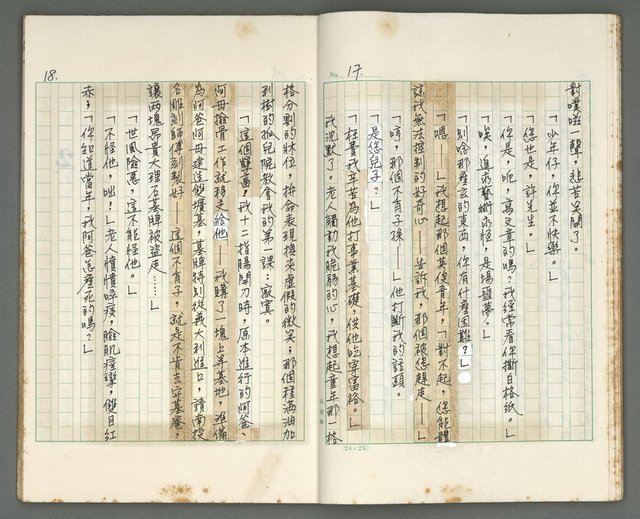 No. 17.
對噗啦一聲，悲苦笑開了。
「少年仔，你並不快樂。」
「您也是，許先生。」
「你是，呃，寫文章的嗎？我經常看你撕白格紙。」
「唉，追求藝術永恆，是場噩夢。」
「別啥那麼玄的東西，你有什麼困難？」
「嗯——」我想起那個英俊青年，「對不起，您能體
諒我無法控制的好奇心——告訴我，那個被您趕走——」
「嗐，那個不肖子孫——」他打斷我的話頭。
「是您兒子？」
「枉費我辛苦為他打事業基礎，從他吃穿富裕。」
我沉默了，老人觸動我脆弱的心，我想起童年那一格
(24×25)
18.
格分割的牀位，拚命表現換來虛假的微笑；那個種滿油加
利樹的孤兒院教會我的第一課：寂寞。
「這個雙薰，我十二指腸開刀時，原本進行的阿爸、
阿母撿骨工作就移交給他——我購了一塊上等基地，準備
為阿爸阿母建造雙壙墓，墓碑特別從義大利進口，請南投
名雕刻師傅刻製好——這個不肖子，就是不肯去守墓庵，
讓兩塊昂貴大理石墓牌被盜走……」
「世風險惡，這不能怪他。」
「不怪他，咄！」老人憤憤啐痰，臉肌痙攣，雙目紅
赤，「你知道當年，我阿爸怎麼死的嗎？」